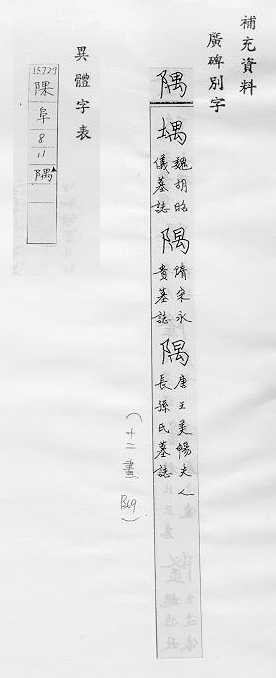 補充資料
廣碑別字
隅
堣
魏胡昭
儀墓誌
隅
隋宋永
貴墓誌
隅
唐王美暢夫人
長孫氏墓誌
(十二畫
異體字表
15727
阜
8
11
隅